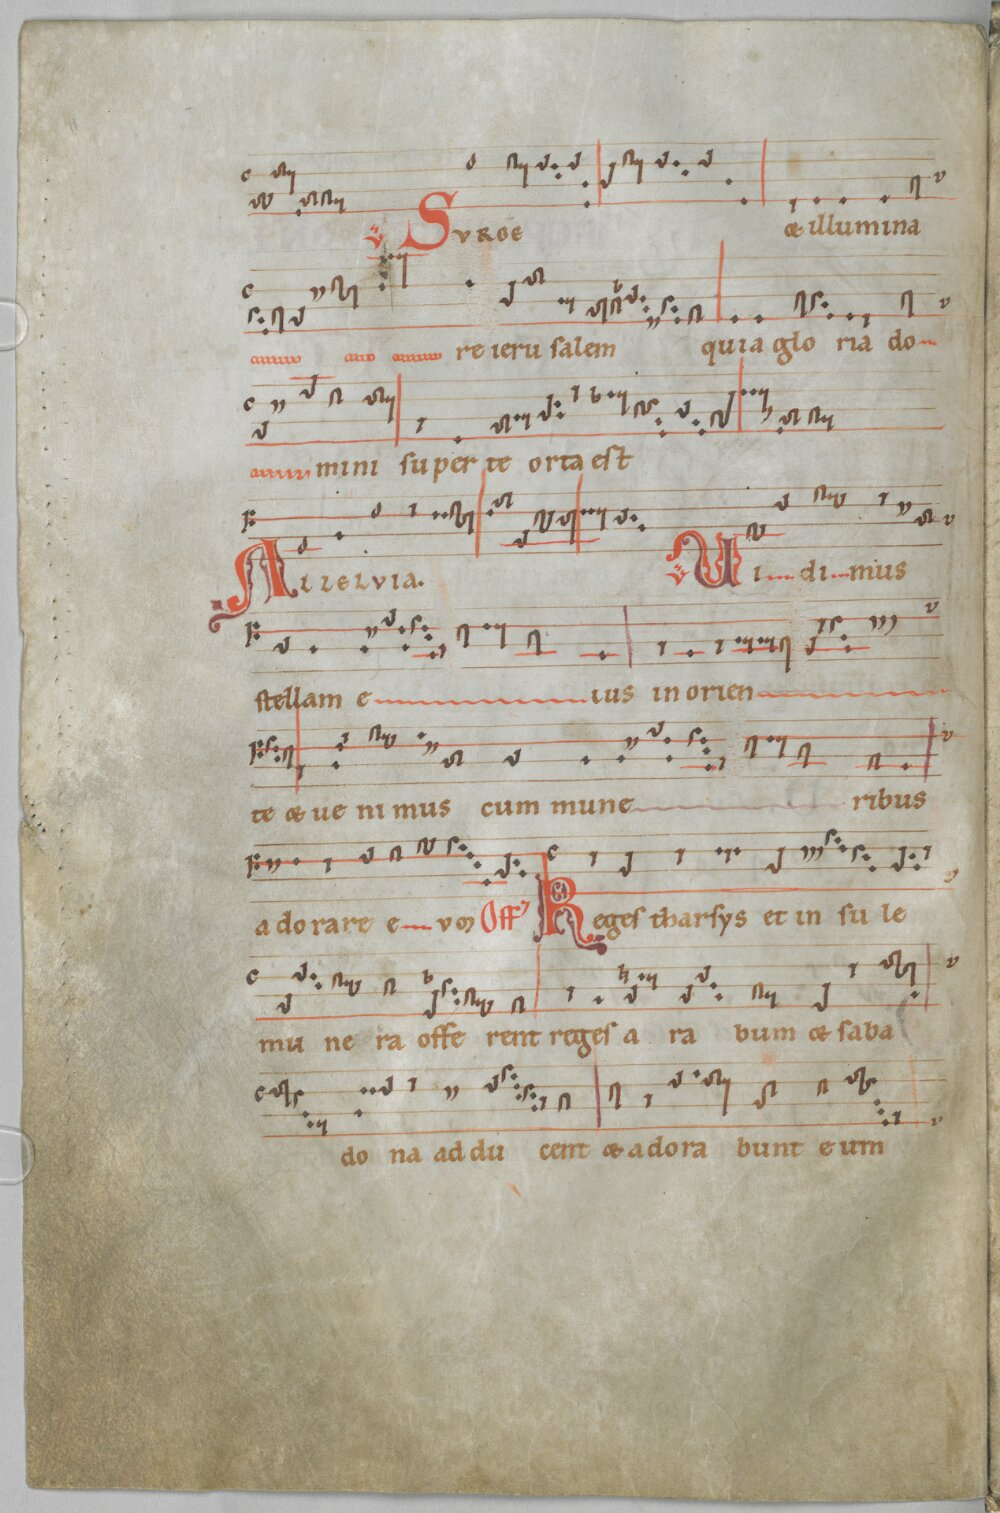 ℣ Surge & illumina
re ieru salem quia glo ria do
mini super te orta est
Alleluia. ℣ Ui di mus
stellam e ius in orien
te & ue ni mus cum mune ribus
adorare e um Off Reges tharsys et in su le
mu ne ra offe rent reges a ra bum & saba
do na ad du cent & adora bunt eum